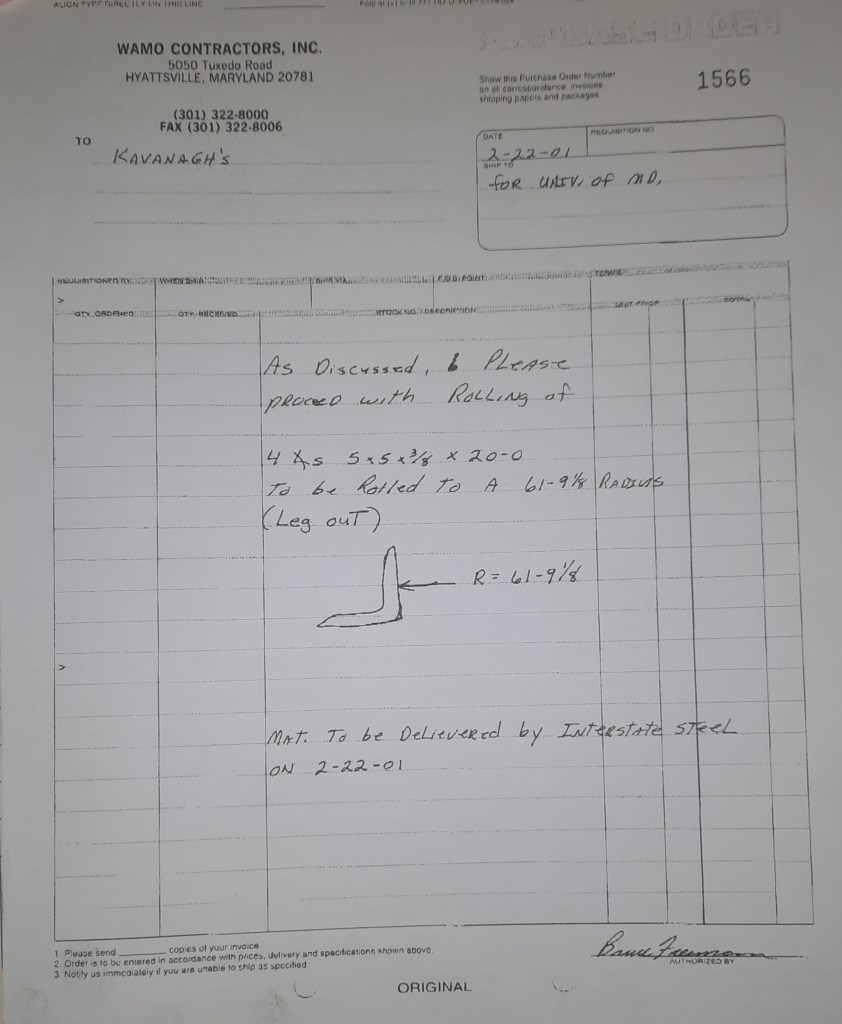 ALIGN TYPE DIRECTLY ON THIN LINE
PURCHASE ORDER
WAMO CONTRACTORS, INC.
5050 Tuxedo Road
HYATTSVILLE, MARYLAND 20781
(301) 322-8000
FAX (301) 322-8006
Show this Purchase Order Number
on all correspondence, invoices
shipping papers and packages
1566
TO
KAVANAGH'S
DATE
REQUISITION NO
2-22-01
SHIP TO
FOR UNIV. OF MD,
REQUISITIONED BY
WHEN SHIP
SHIP VIA
F.O.B. POINT
TERMS
QTY. ORDERED
QTY. RECEIVED
STOCK NO./DESCRIPTION
UNIT PRICE
TOTAL
As Discussed, & PLEASE
proceed with Rolling of
4 ∠s 5 x 5 x 3/8 x 20-0
To be Rolled To A 61-9 1/8 RADIUS
(Leg ouT)
R = 61-9 1/8
MAT. To be Delievered by INTERSTATE STEEL
ON 2-22-01
1 Please send ________ copies of your invoice.
2. Order is to be entered in accordance with prices, delivery and specifications shown above.
3 Notify us immediately if you are unable to ship as specified
Bruce Freeman
AUTHORIZED BY
ORIGINAL